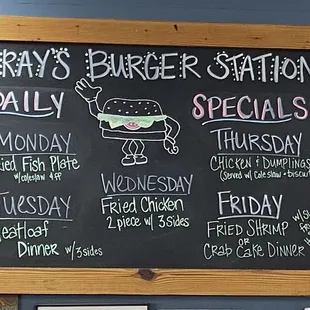 RAY'S BURGER STATION
DAILY
SPECIALS
MONDAY
Fried Fish Plate
w/coleslaw & FF
TUESDAY
Meatloaf
Dinner w/3 sides
WEDNESDAY
Fried Chicken
2 piece w/ 3 sides
THURSDAY
Chicken & Dumplings
(Served w/ Cole slaw & biscuit
FRIDAY
Fried Shrimp
OR
Crab Cake Dinner